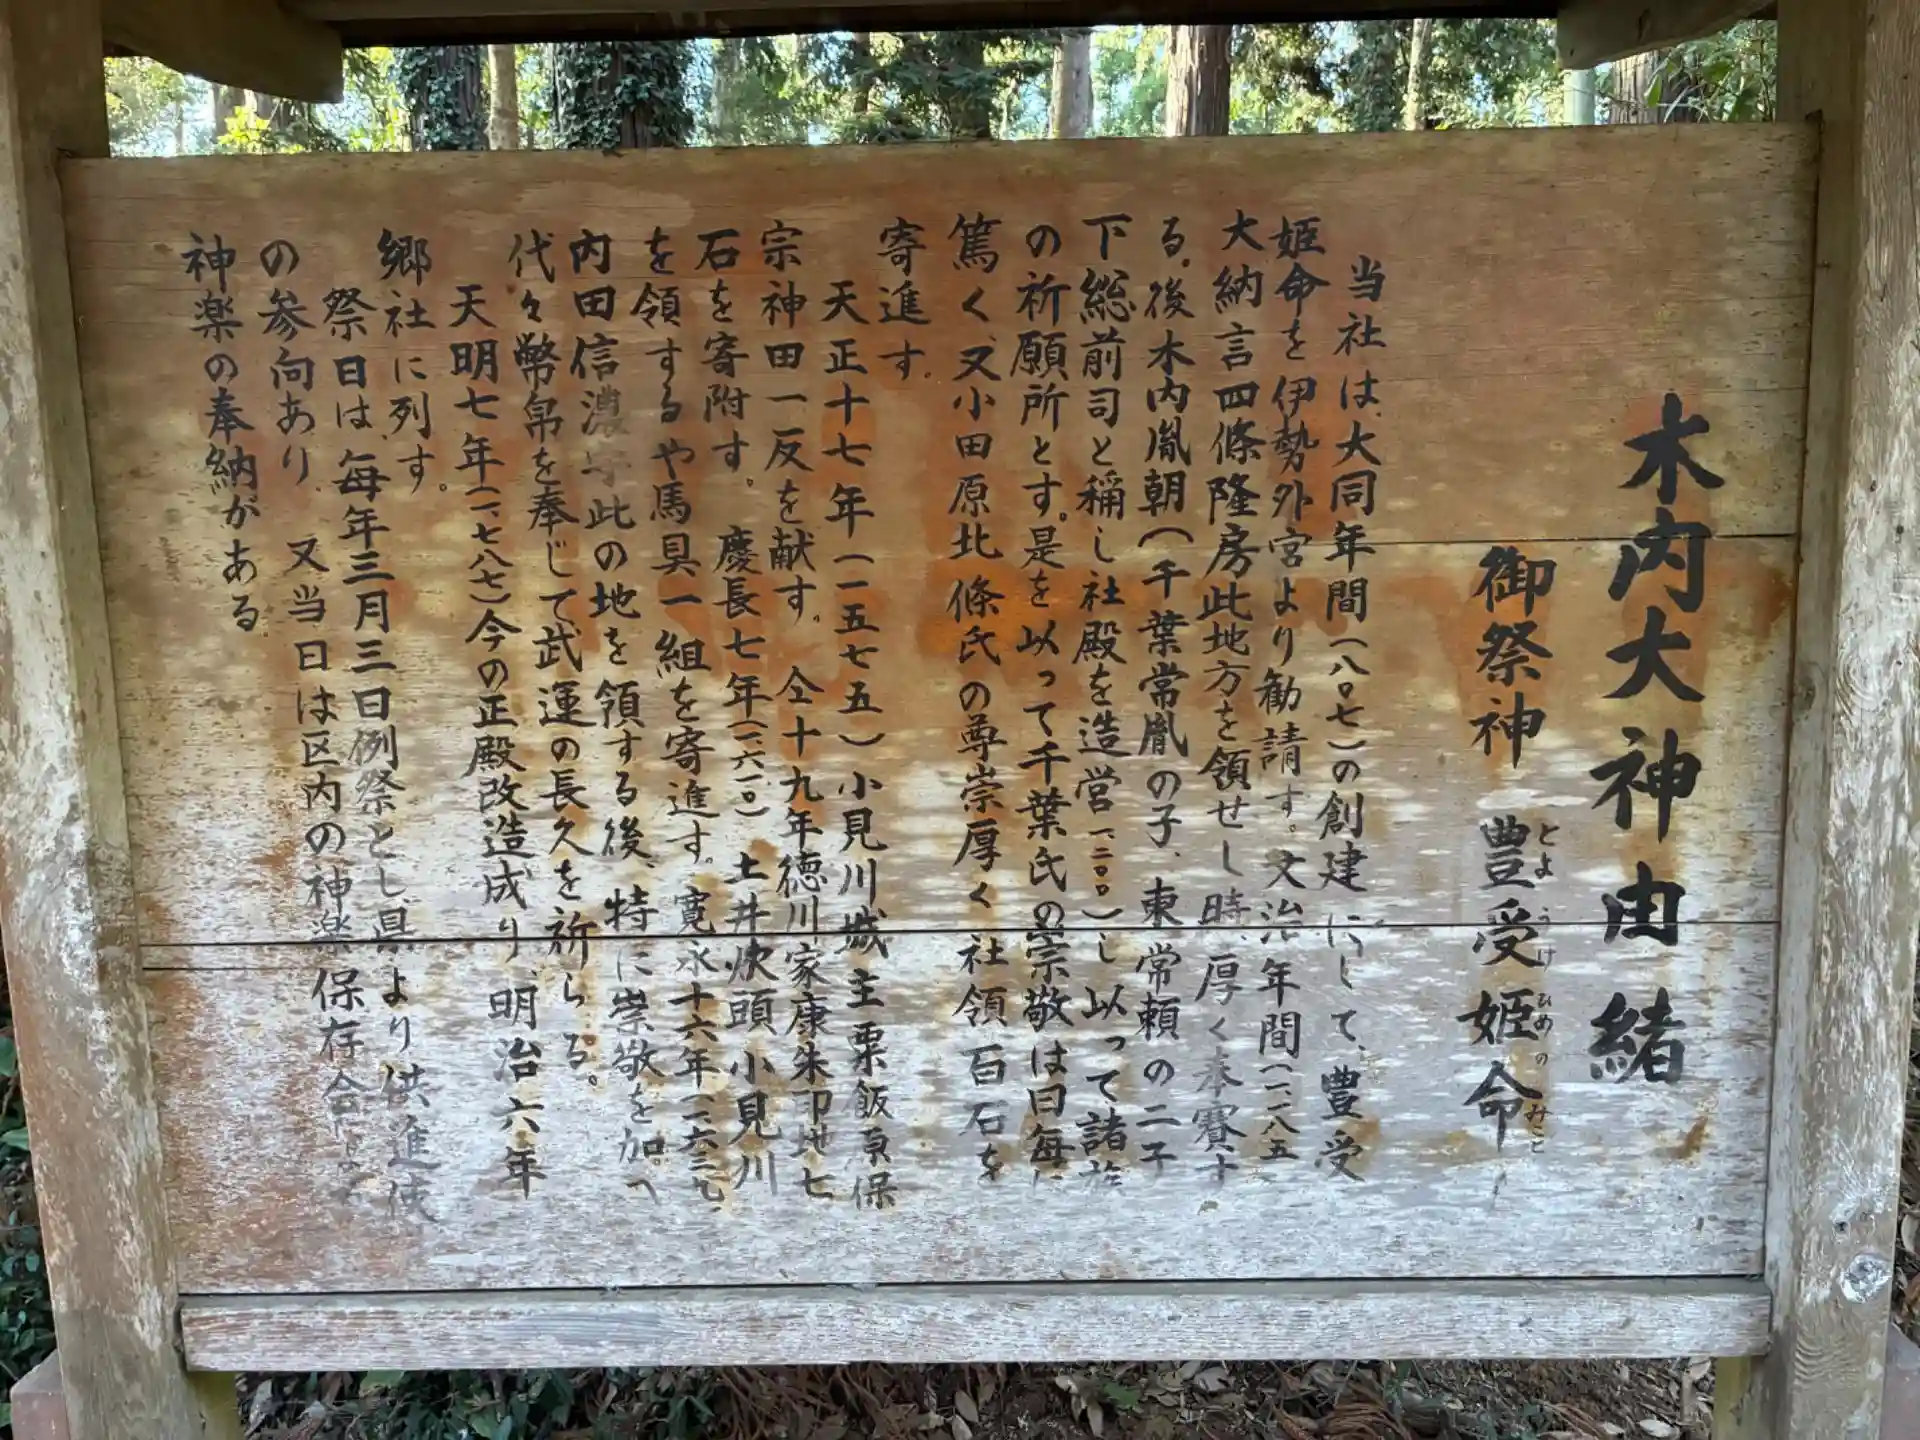 木内大神由緒
御祭神 豊受姫命
とようけひめのみこと
当社は、大同年間(八〇七)の創建にして、豊受
姫命を伊勢外宮より勧請す。文治年間(一、一八五
大納言四條隆房此地方を領せし時、厚く奉賽す
る。後木内胤朝(千葉常胤の子、東常頼の二子
下総前司と稱し社殿を造営(一、二〇〇)し以って諸族
の祈願所とす。是を以って千葉氏の崇敬は日毎に
篤く、又小田原北條氏の尊崇厚く社領百石を
寄進す。
天正十七年(一五七五)小見川城主粟飯原保
宗神田一反を献す。仝十九年徳川家康朱印地七
石を寄附す。慶長七年(一、六一〇)土井炊頭小見川
を領するや馬具一組を寄進す。寛永十六年(一、六三九
内田信濃守此の地を領する後、特に崇敬を加へ
代々幣帛を奉じて武運の長久を祈らる。
天明七年(一、七八七)今の正殿改造成り、明治六年
郷社に列す。
祭日は、毎年三月三日例祭とし県より供進使
の参向あり、又当日は区内の神楽保存会
神楽の奉納がある